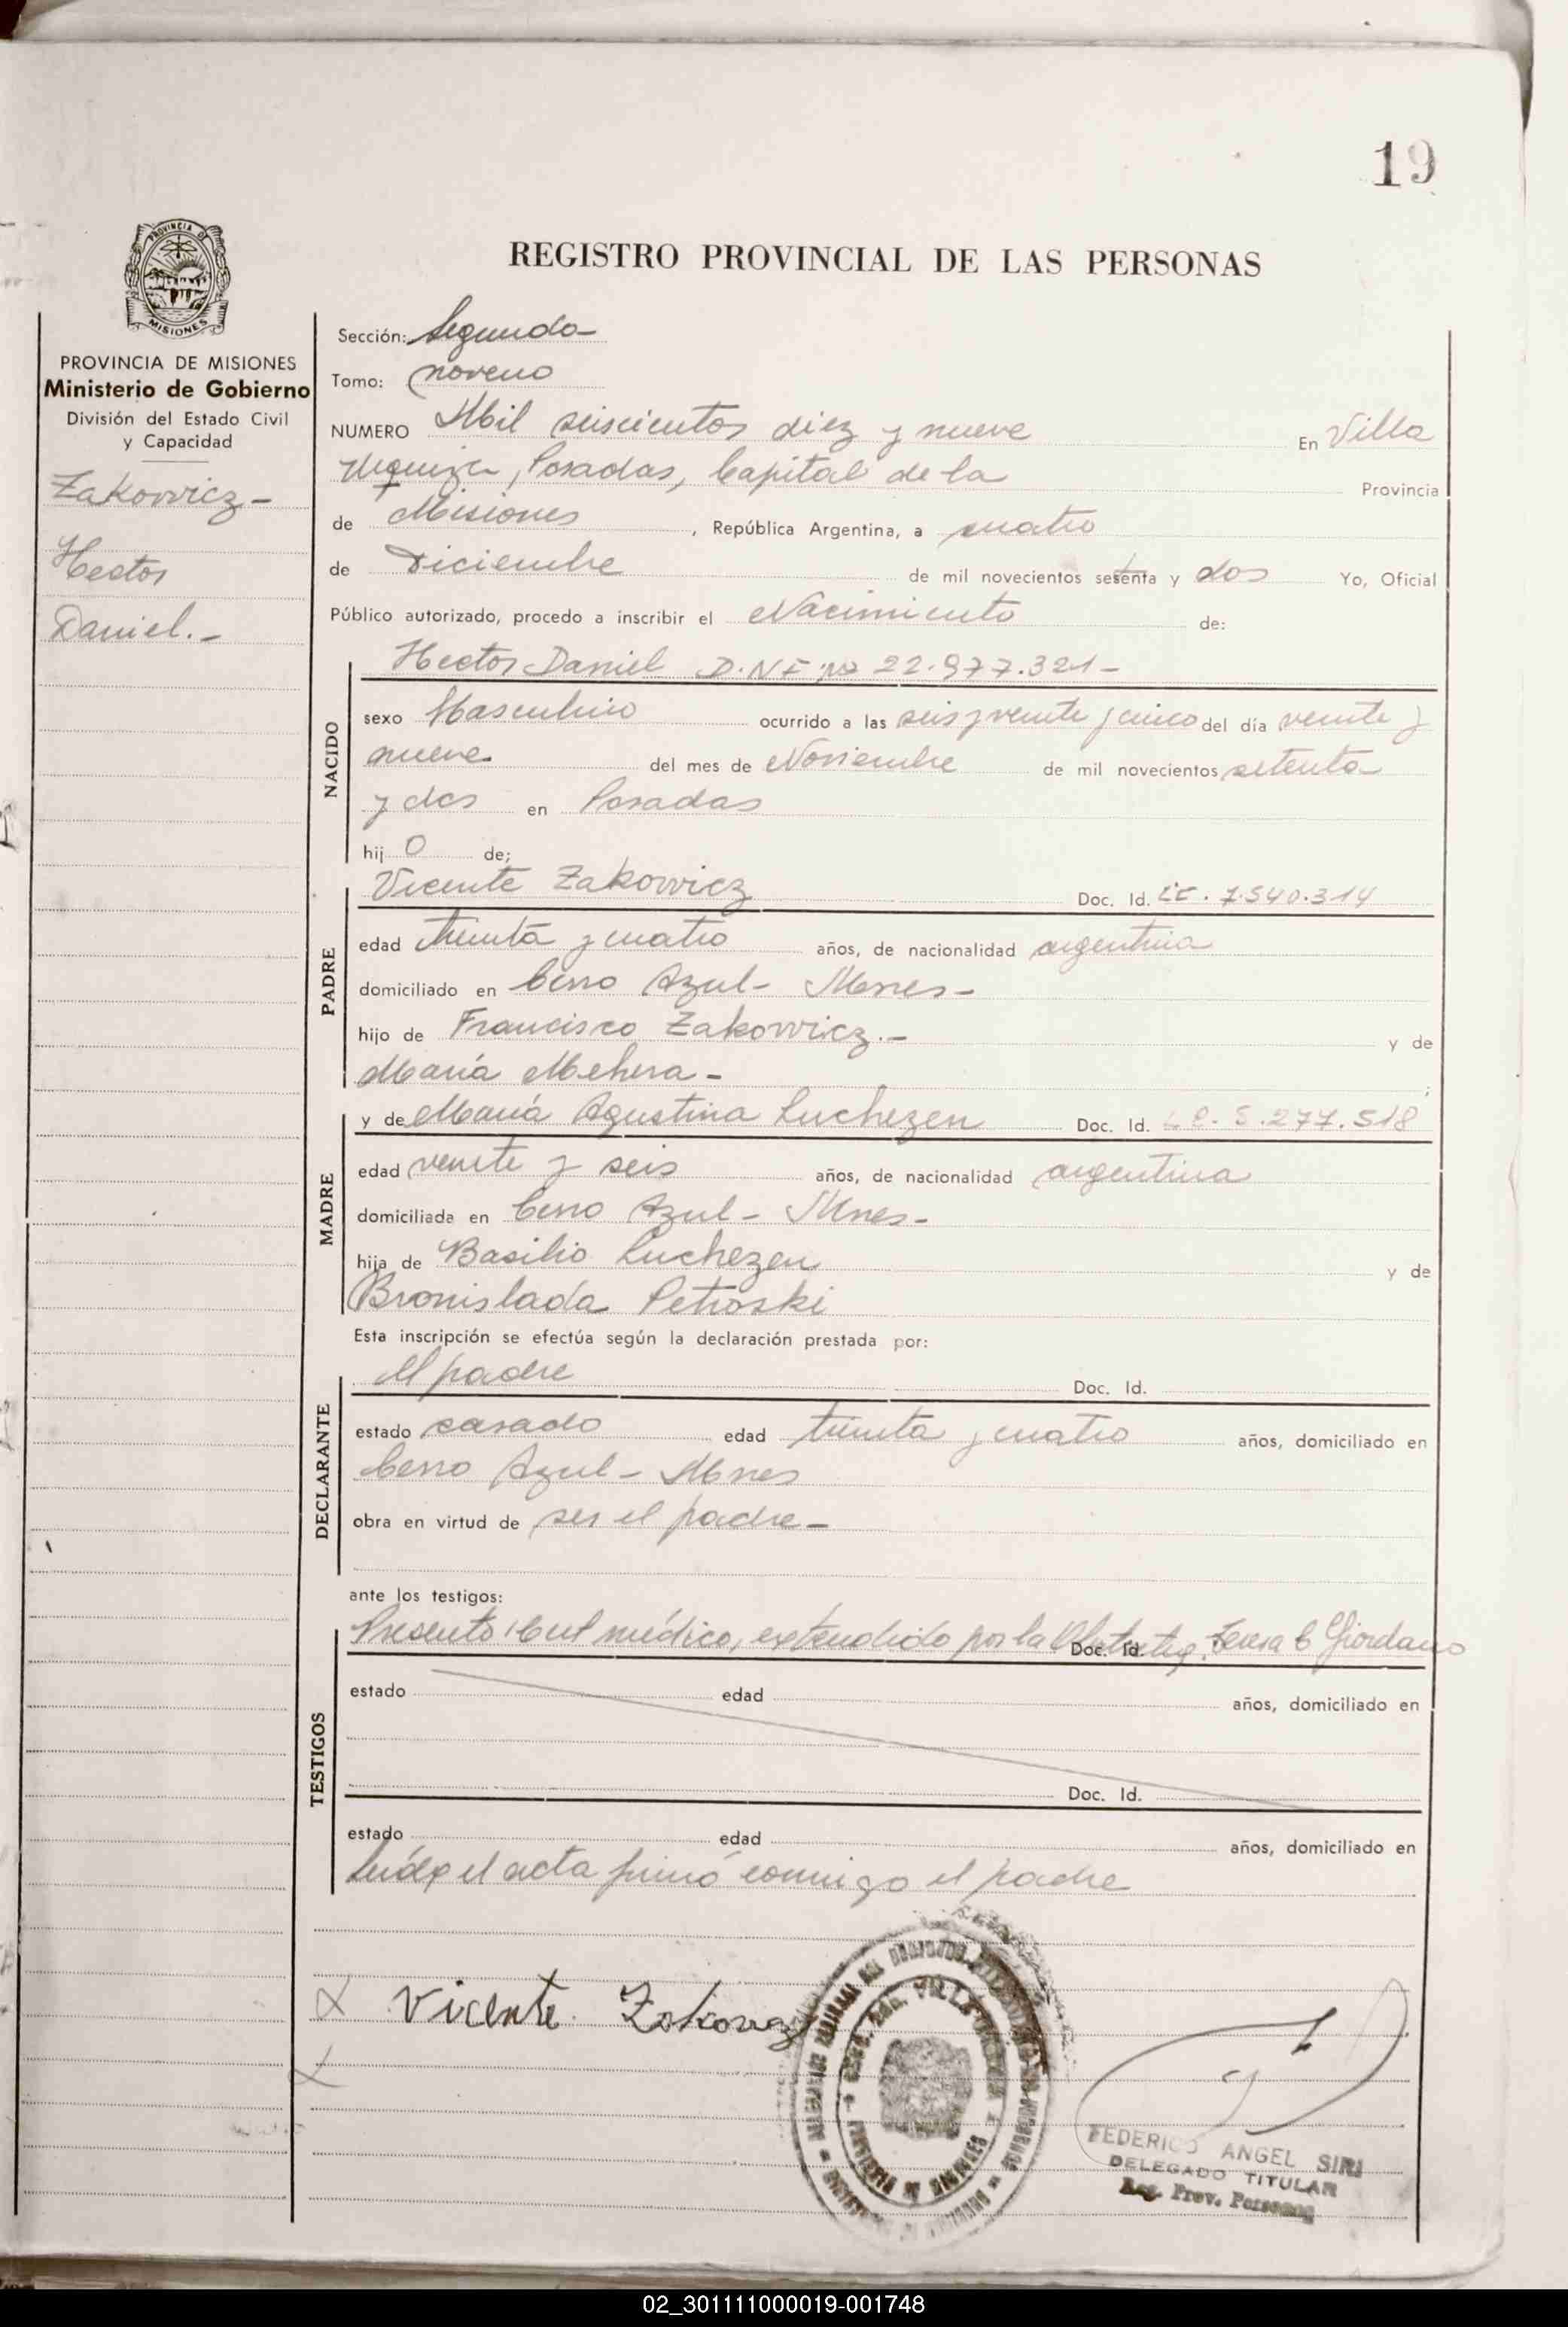 19
PROVINCIA DE
MISIONES
REGISTRO PROVINCIAL DE LAS PERSONAS
PROVINCIA DE MISIONES
Ministerio de Gobierno
División del Estado Civil
y Capacidad
Zakowicz-
Hector
Daniel.-
Sección: Segunda-
Tomo: noveno
NUMERO Mil seiscientos diez y nueve En Villa
Urquiza, Posadas, Capital de la Provincia
de Misiones, República Argentina, a cuatro
de Diciembre de mil novecientos setenta y dos Yo, Oficial
Público autorizado, procedo a inscribir el Nacimiento de:
NACIDO
Hector Daniel D.N.I nº 22.977.321-
sexo Masculino ocurrido a las seis y veinte y cinco del día veinte y
nueve del mes de Noviembre de mil novecientos setenta
y dos en Posadas
hijo de;
PADRE
Vicente Zakowicz Doc. Id. LE. 7.540.314
edad treinta y cuatro años, de nacionalidad argentina
domiciliado en Cerro Azul- Mnes-
hijo de Francisco Zakowicz.- y de
María Mehera-
MADRE
y de María Agustina Luchezen Doc. Id. LC. 5.277.518
edad veinte y seis años, de nacionalidad argentina
domiciliada en Cerro Azul- Mnes-
hija de Basilio Luchezen y de
Bronislada Petroski
Esta inscripción se efectúa según la declaración prestada por:
DECLARANTE
el padre Doc. Id.
estado casado edad treinta y cuatro años, domiciliado en
Cerro Azul- Mnes
obra en virtud de ser el padre-
ante los testigos:
TESTIGOS
Presento Cert médico, extendido por la Doc. Id. Teresa C Giordano
estado edad años, domiciliado en
Doc. Id.
estado edad años, domiciliado en
Leída el acta firmó conmigo el padre
Vicente Zakowicz
FEDERICO ANGEL SIRI
DELEGADO TITULAR
Reg. Prov. Personas
02_301111000019-001748